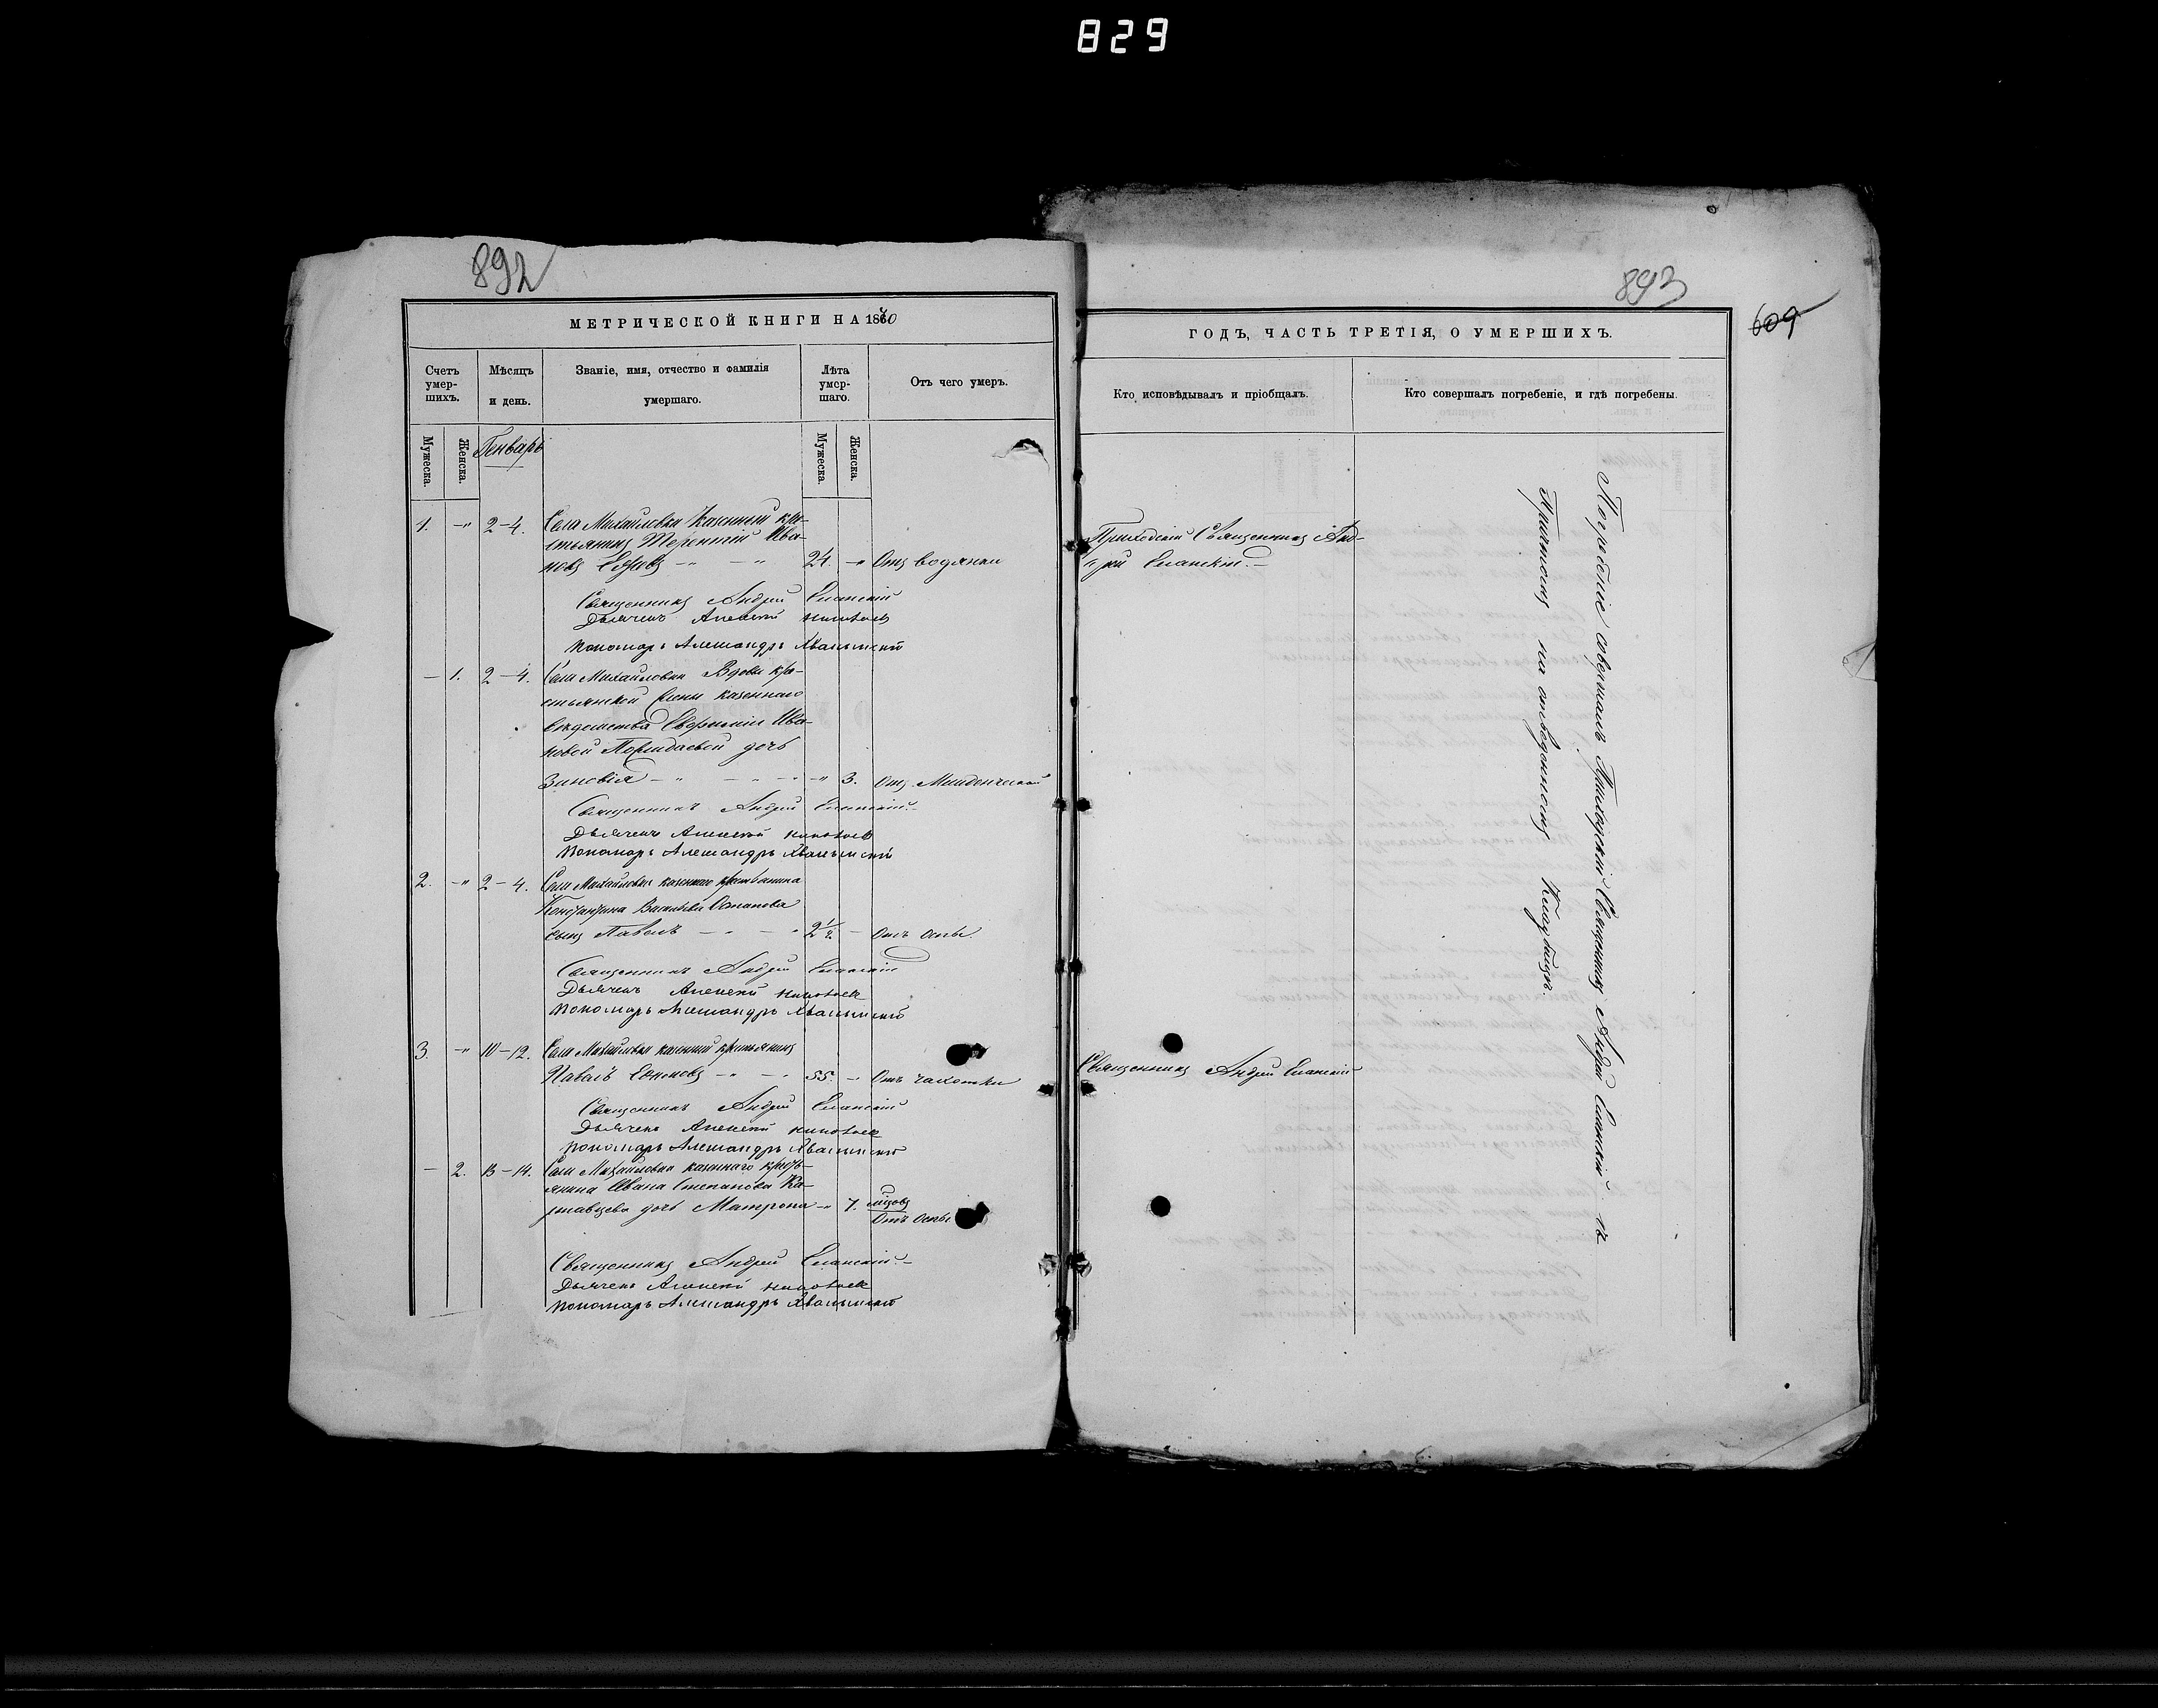 829
892
МЕТРИЧЕСКОЙ КНИГИ НА 1870
Счетъ умер-шихъ.
Мѣсяцъ и день.
Званіе, имя, отчество и фамилія умершаго.
Лѣта умер-шаго.
Отъ чего умеръ.
Мужеска.
Женска.
Генварь
Мужеска.
Женска.
1. -" 2-4. Села Михайловки казенный кре-
стьянинъ Терентій Ива-
новъ 24. -" Отъ водянки
Священникъ Андрей Еланскій
Дьячекъ Алексей
пономарь Александръ Хвалынский
- 1. 2-4. Села Михайловки Вдовы кре-
стьянской жены казеннаго
вѣдомства Евфиміи Ива-
новой дочь
Зиновія -" 3. Отъ Младенческой
Священникъ Андрей Еланскій
Дьячекъ Алексей
пономарь Александръ Хвалынский
2. -" 2-4. Села Михайловки казеннаго крестьянина
Константина Васильева Остапова
сынъ Павелъ 2 1/2 - Отъ Оспы.
Священникъ Андрей Еланскій
Дьячекъ Алексей
пономарь Александръ Хвалынский
3. -" 10-12. Села Михайловки казенный крестьянинъ
Павелъ 55. - Отъ чахотки
Священникъ Андрей Еланскій
Дьячекъ Алексей
пономарь Александръ Хвалынский
- 2. 13-14. Села Михайловки казеннаго кресть-
янина Ивана Степанова
дочь Матрона -" 7. мѣсяцовъ
Отъ Оспы
Священникъ Андрей Еланскій
Дьячекъ Алексей
пономарь Александръ Хвалынский
893
609
ГОДЪ, ЧАСТЬ ТРЕТІЯ, О УМЕРШИХЪ.
Кто исповѣдывалъ и пріобщалъ.
Кто совершалъ погребеніе, и гдѣ погребены.
Приходскій Священникъ Анд-
рей Еланскій.-
Священникъ Андрей Еланскій
Погребеніе совершалъ Приходскій Священникъ Андрей Еланскій съ
Причтомъ на отведенномъ Кладбищѣ.